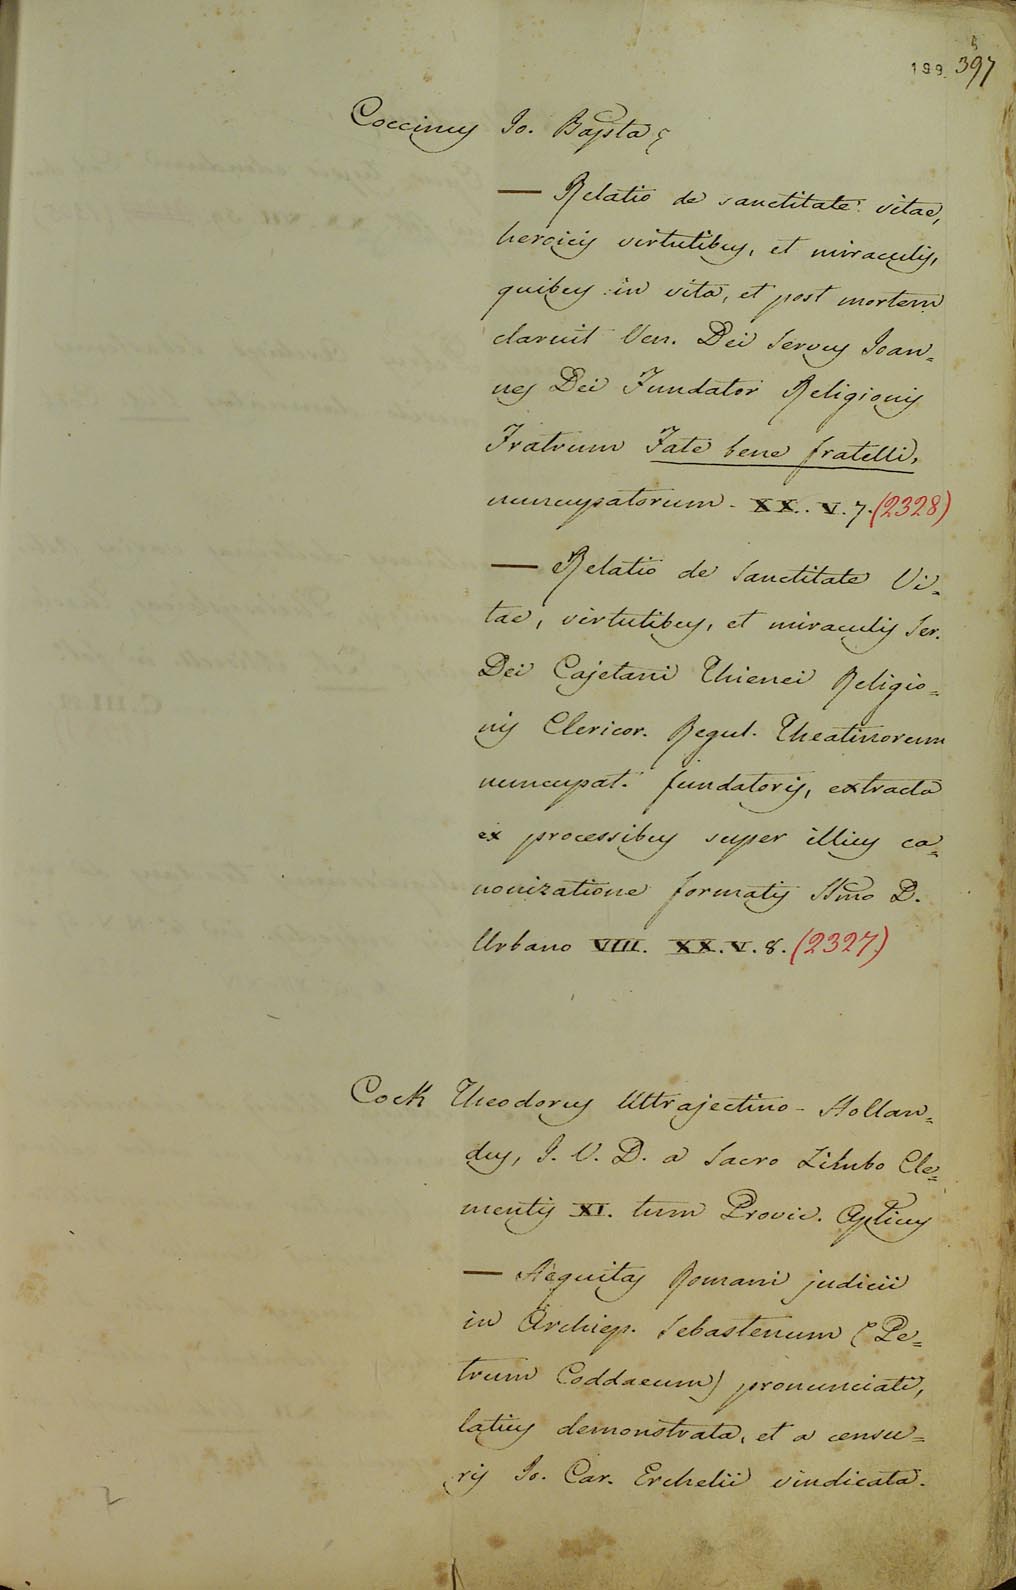 199. 397
Coccinus Jo. Bapsta
— Relatio de sanctitate vitae,
heroicis virtutibus, et miraculis,
quibus in vita, et post mortem
claruit Ven. Dei Servus Joan=
nes Dei Fundator Religionis
Fratrum Fate bene fratelli,
nuncupatorum. XX. V. 7. (2328)
— Relatio de Sanctitate Vi=
tae, virtutibus, et miraculis Ser.
Dei Cajetani Thienei Religio=
nis Clericor. Regul. Theatinorum
nuncupat. fundatoris, extracta
ex processibus super illius ca=
nonizatione formatis Smo D.
Urbano VIII. XX. V. 8. (2327)
Cock Theodorus Ultrajectino-Hollan=
dus, J. U. D. a Sacro Cle=
mentis XI. tum Provic. Aplicus
— Aequitas Romani judicii
in Archiep. Sebastenum (Pe=
trum Coddaeum) pronunciati,
latius demonstrata, et a censu=
ris Jo. Car. Erchelii vindicata.